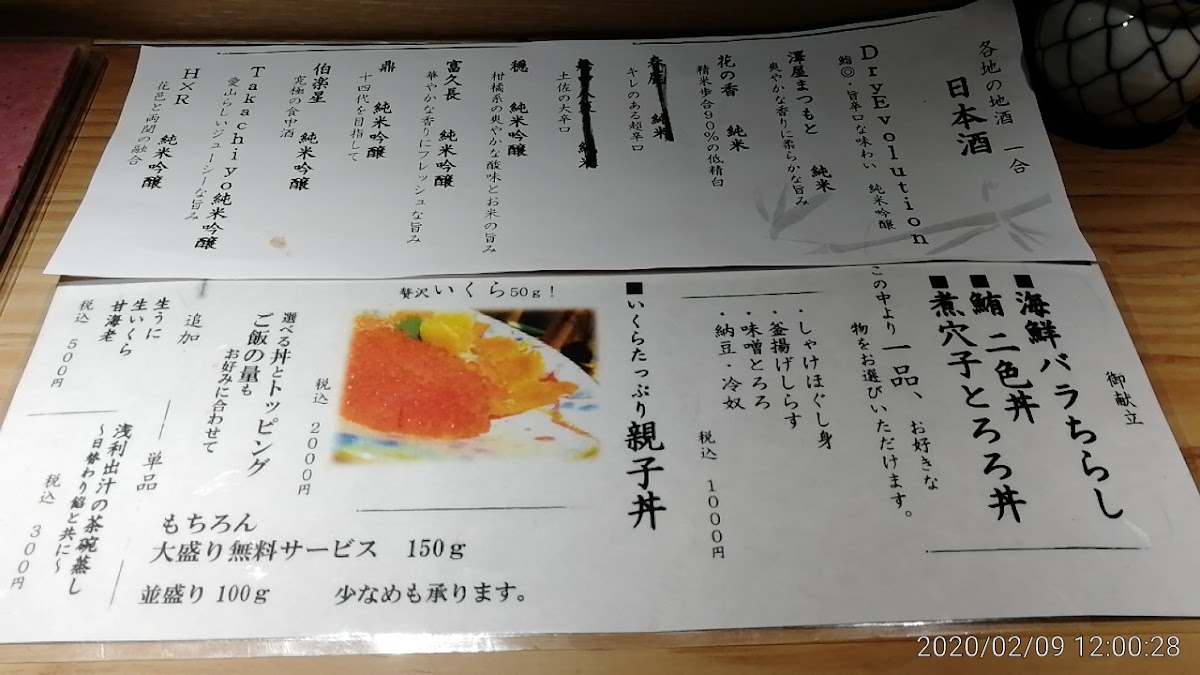 各地の地酒
日本酒
一合
DryEvolution
鮨◎、旨辛口な味わい 純米吟醸
澤屋まつもと 純米
爽やかな香りに柔らかな旨み
花の香 純米
精米歩合90%の低精白
純米
キレのある超辛口
純米
土佐の大辛口
穏 純米吟醸
柑橘系の爽やかな酸味とお米の旨み
富久長 純米吟醸
華やかな香りにフレッシュな旨み
鼎 純米吟醸
十四代を目指して
伯楽星 純米吟醸
究極の食中酒
Takachiyo純米吟醸
愛山らしいジューシーな旨み
H×R 純米吟醸
花邑と両関の融合
御献立
■海鮮バラちらし
■鮪 二色丼
■煮穴子とろろ丼
この中より一品、お好きな
物をお選びいただけます。
・しゃけほぐし身
・釜揚げしらす
・味噌とろろ
・納豆・冷奴
税込 1000円
■いくらたっぷり親子丼
贅沢いくら50g!
税込 2000円
選べる丼とトッピング
ご飯の量も
お好みに合わせて
追加
生うに
生いくら
甘海老
税込 500円
単品
浅利出汁の茶碗蒸し
~日替わり餡と共に~
税込 300円
もちろん
大盛り無料サービス 150g
並盛り100g 少なめも承ります。
2020/02/09 12:00:28